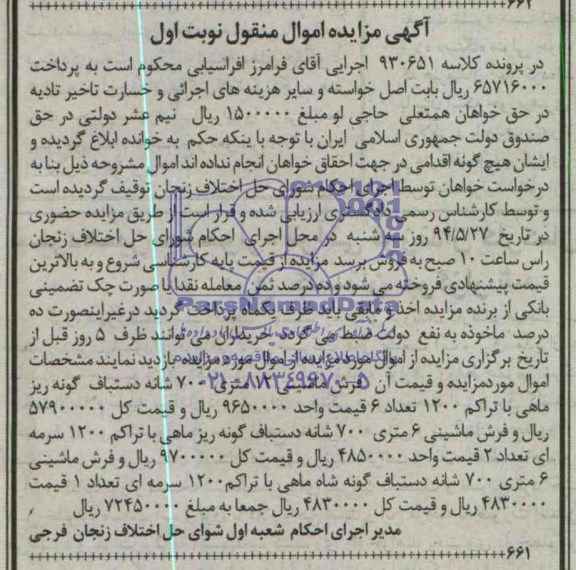 ۶۶۲
آگهی مزایده اموال منقول نوبت اول
در پرونده کلاسه ۹۳۰۶۵۱ اجرایی آقای فرامرز افراسیابی محکوم است به پرداخت
۶۵۷۱۶۰۰۰ ریال بابت اصل خواسته و سایر هزینه های اجرائی و خسارت تاخیر تادیه
در حق خواهان همتعلی حاجی لو مبلغ ۱۵۰۰۰۰۰ ریال نیم عشر دولتی در حق
صندوق دولت جمهوری اسلامی ایران با توجه با ینکه حکم به خوانده ابلاغ گردیده و
ایشان هیچ گونه اقدامی در جهت احقاق خواهان انجام نداده اند اموال مشروحه ذیل بنا به
درخواست خواهان توسط اجرای احکام شورای حل اختلاف زنجان توقیف گردیده است
و توسط کارشناس رسمی دادگستری ارزیابی شده و قرار است از طریق مزایده حضوری
در تاریخ ۹۴/۵/۲۷ روز سه شنبه در محل اجرای احکام شورای حل اختلاف زنجان
راس ساعت ۱۰ صبح به فروش برسد مزایده از قیمت پایه کارشناسی شروع و به بالاترین
قیمت پیشنهادی فروخته می شود و ده درصد ثمن معامله نقدا یا صورت چک تضمینی
بانکی از برنده مزایده اخذ و مابقی باید ظرف یکماه پرداخت گردید درغیراینصورت ده
درصد ماخوذه به نفع دولت ضبط می گردد خریداران می توانند ظرف ۵ روز قبل از
تاریخ برگزاری مزایده از اموال مورد مزایده از اموال مورد مزایده بازدید نمایند مشخصات
اموال موردمزایده و قیمت آن فرش ماشینی ۱۲ متری ۷۰۰ شانه دستباف گونه ریز
ماهی با تراکم ۱۲۰۰ تعداد ۶ قیمت واحد ۹۶۵۰۰۰۰ ریال و قیمت کل ۵۷۹۰۰۰۰۰
ریال و فرش ماشینی ۶ متری ۷۰۰ شانه دستباف گونه ریز ماهی با تراکم ۱۲۰۰ سرمه
ای تعداد ۲ قیمت واحد ۴۸۵۰۰۰۰ ریال و قیمت کل ۹۷۰۰۰۰۰ ریال و فرش ماشینی
۶ متری ۷۰۰ شانه دستباف گونه شاه ماهی با تراکم ۱۲۰۰ سرمه ای تعداد ۱ قیمت
۴۸۳۰۰۰۰ ریال و قیمت کل ۴۸۳۰۰۰۰ ریال جمعا به مبلغ ۷۲۴۵۰۰۰۰ ریال
مدیر اجرای احکام شعبه اول شوای حل اختلاف زنجان فرجی
۶۶۱
ParsNamadData
۰۲۱-۸۸۳۴۹۶۷۰-۵